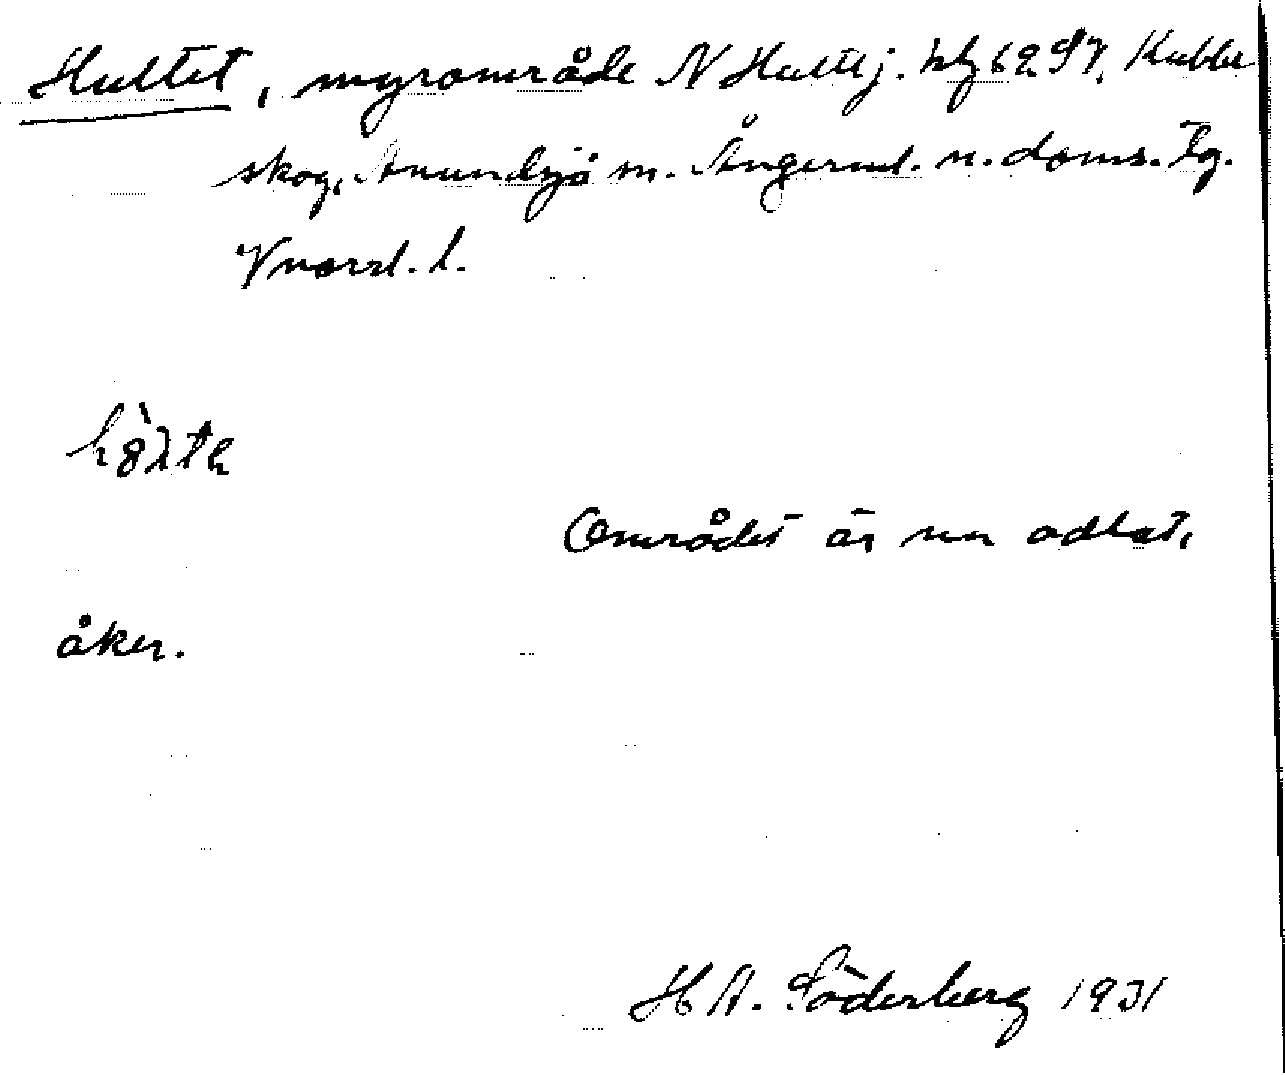 Hultet, myrområde N Hultsj. hlf 62 S7, Kubbe
skog, Anundsjö sn. Ångerml. n. doms. Tg.
Vnorrl. l.
Området är nu odlat,
åker.
H A. Söderberg 1931